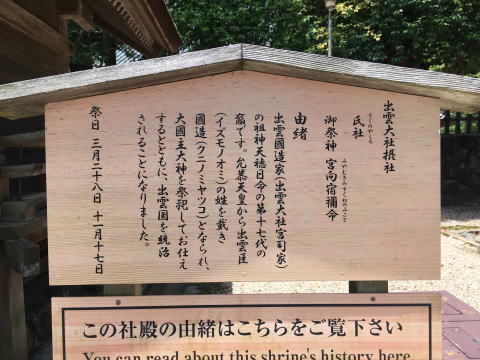 出雲大社摂社
氏社
うじのやしろ
御祭神 宮向宿禰命
みやむきのすくねのみこと
由緒
出雲國造家(出雲大社宮司家)
の祖神天穂日命の第十七代の
裔です。允恭天皇から出雲臣
(イズモノオミ)の姓を戴き
國造(クニノミヤツコ)となられ、
大國主大神を祭祀してお仕え
するとともに、出雲国を統治
されることになりました。
祭日 三月二十八日 十一月十七日
この社殿の由緒はこちらをご覧下さい
You can read about this shrine's history here.